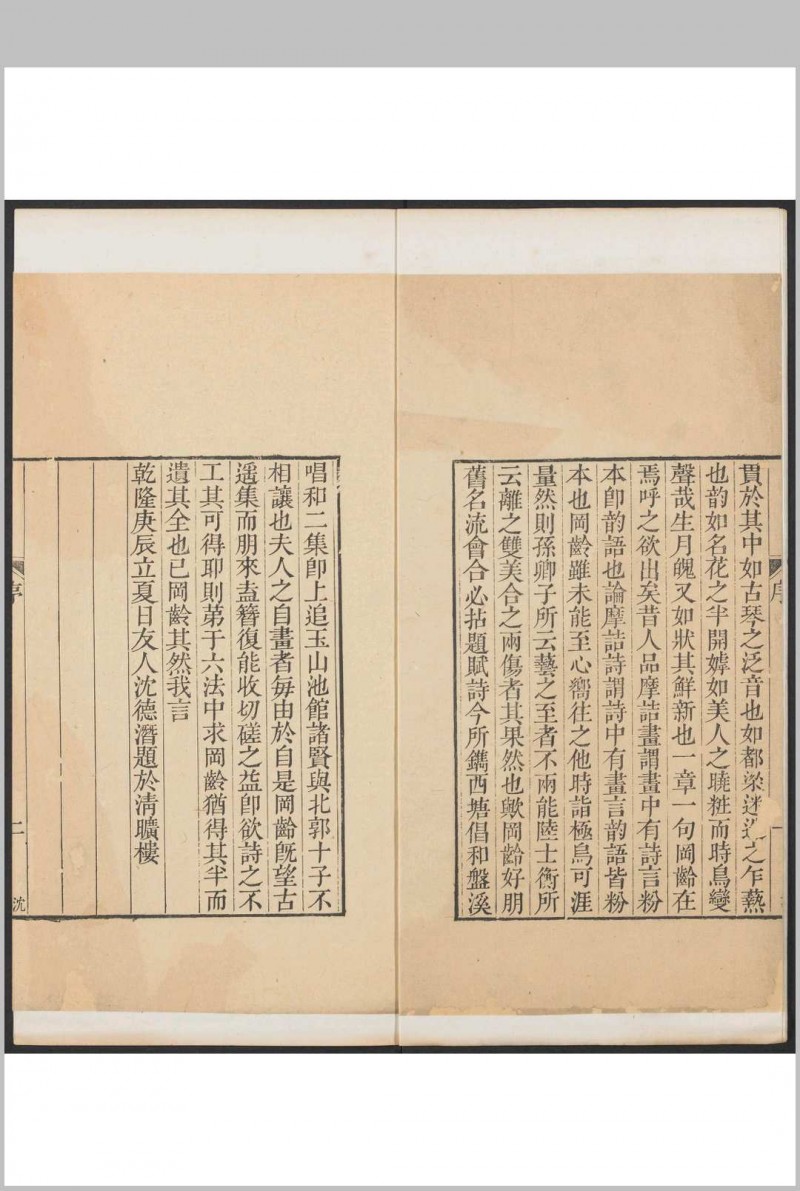 貫於其中如古琴之泛音也如都梁迷迭之乍爇
也韵如名花之半開婞如美人之曉粧而時鳥變
聲哉生月魄又如狀其鮮新也一章一句岡齡在
焉呼之欲出矣昔人品摩詰畫謂畫中有詩言粉
本卽韵語也論摩詰詩謂詩中有畫言韵語皆粉
本也岡齡雖未能至心嚮往之他時詣極烏可涯
量然則孫卿子所云藝之至者不兩能陸士衡所
云離之雙美合之兩傷者其果然也歟岡齡好朋
舊名流會合必拈題賦詩今所鐫西塘倡和盤溪
序
唱和二集卽上追玉山池館諸賢與北郭十子不
相讓也夫人之自畫者毎由於自是岡齡旣望古
遥集而朋來盍簪復能收切磋之益卽欲詩之不
工其可得耶則第于六法中求岡齡猶得其半而
遺其全也已岡齡其然我言
乾隆庚辰立夏日友人沈德潛題於淸曠樓
序
二
沈